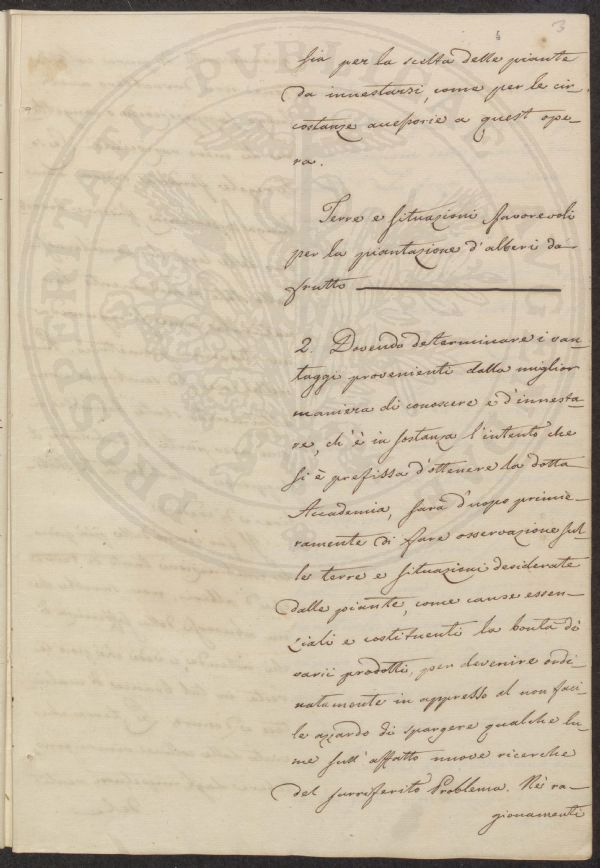 3
sia per la scelta delle piante
da innestarsi, come per le cir-
costanze accessorie a quest'ope-
ra.
Terre e situazioni favorevoli
per la piantazione d'alberi da
frutto
2. Dovendo determinare i van-
taggi provenienti dalla miglior
maniera di conoscere e d'innesta-
re, ch'è in sostanza l'intento che
si è prefissa d'ottenere la dotta
Accademia, sarà d'uopo primie-
ramente di fare osservazione sul-
le terre e situazioni desiderate
dalle piante, come cause essen-
ziali e costituenti la bontà di
varii prodotti, per devenire ordi-
natamente in appresso al non faci-
le azzardo di spargere qualche lu-
me sull'affatto nuove ricerche
del surriferito Problema. Nè ra-
gionamenti
PROSPERITATI PVBLICAE AVGENDAE